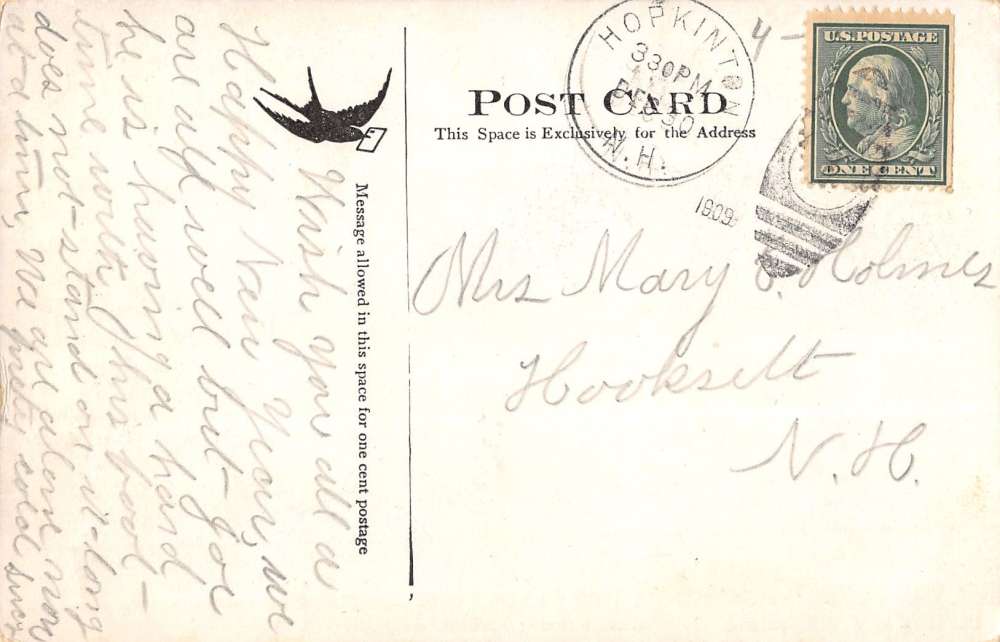 HOPKINTON
330PM
DEC 30
N.H.
1909
4-
U.S.POSTAGE
ONE CENT
POST CARD
This Space is Exclusively for the Address
Message allowed in this space for one cent postage
Wish you all a
Happy New Year, we
are all well but Joe
he is having a hard
time with his foot-
does not-stand on it-long
at-a time, We are alone now
pretty cold
Mrs Mary Holmes
Hooksett
N. H.